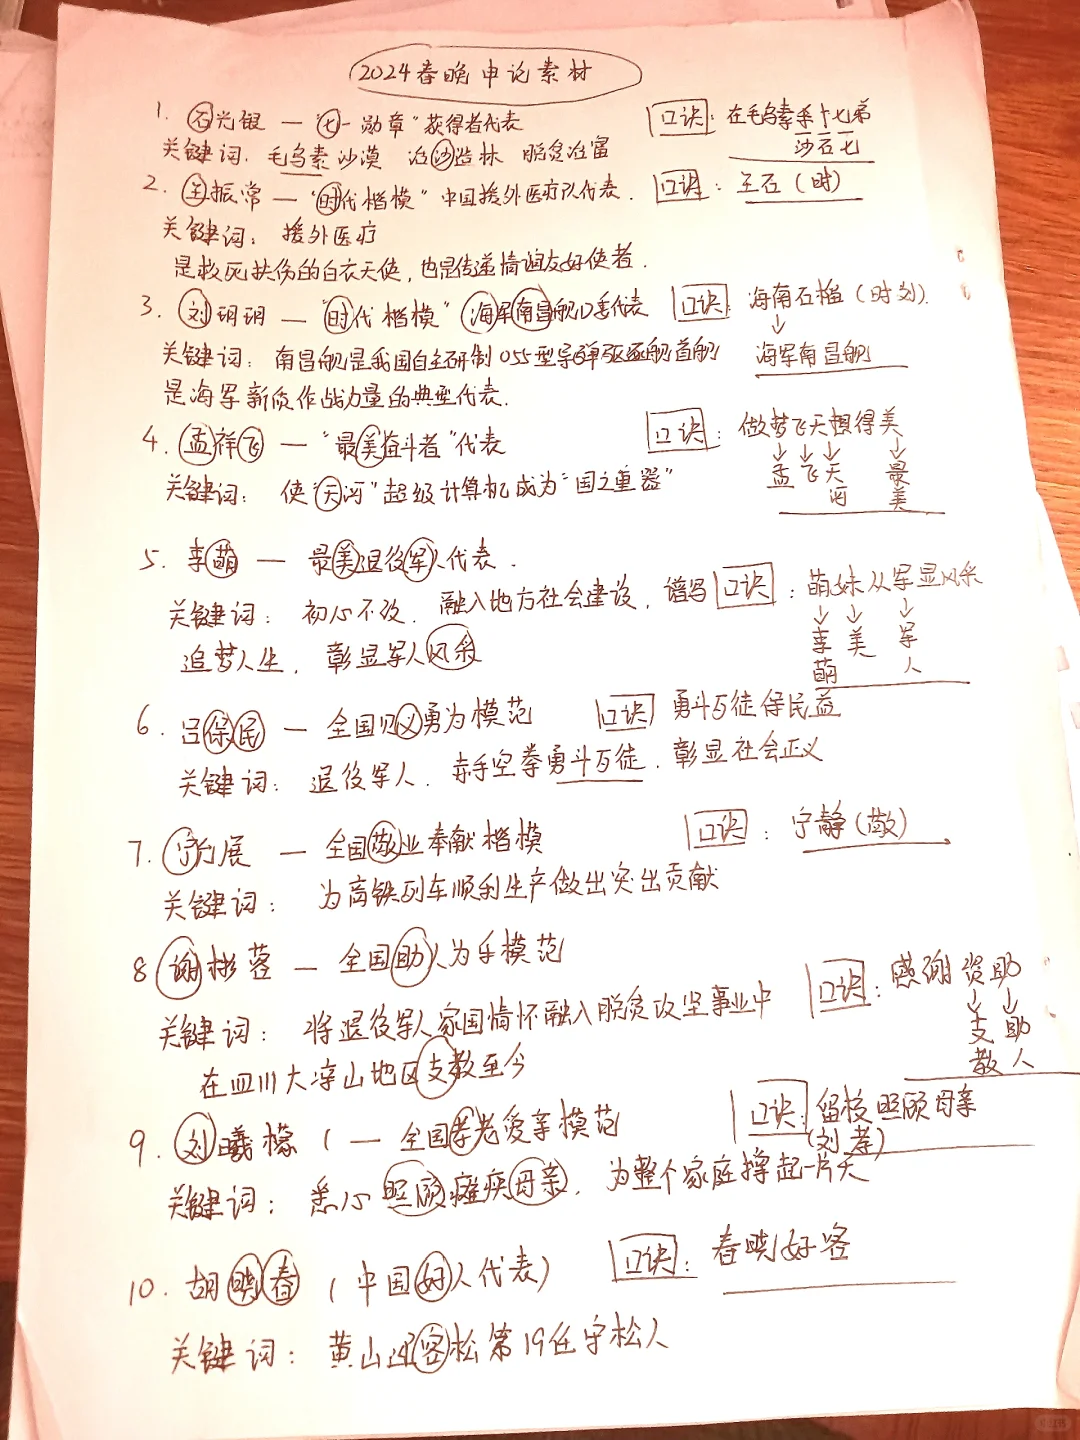 2024春晚申论素材
1. 石光银 — "七一勋章"获得者代表 口诀: 在毛乌素杀十七弟
沙石七
关键词: 毛乌素沙漠 治沙造林 脱贫治富
2. 王振常 — "时代楷模" 中国援外医疗队代表. 口诀: 王石(时)
关键词: 援外医疗
是救死扶伤的白衣天使,也是传递情谊友好使者.
3. 刘玥玥 — "时代楷模" 海军南昌舰代表 口诀: 海南石楷(时刘).
海军南昌舰
关键词: 南昌舰是我国自主研制055型导弹驱逐舰首舰
是海军新质作战力量的典型代表.
4. 孟祥飞 — "最美奋斗者"代表 口诀: 做梦飞天想得美
孟 飞 天河 最美
关键词: 使"天河"超级计算机成为"国之重器"
5. 李萌 — 最美退役军人代表.
关键词: 初心不改. 融入地方社会建设, 谱写 口诀: 萌妹从军显风采
李萌 美 军人
追梦人生. 彰显军人风采
6. 吕保民 — 全国见义勇为模范 口诀 勇斗歹徒保民益
关键词: 退役军人. 赤手空拳勇斗歹徒. 彰显社会正义
7. 宁允展 — 全国敬业奉献楷模 口诀: 宁静(敬)
关键词: 为高铁列车顺利生产做出突出贡献
8 谢彬蓉 — 全国助人为乐模范 口诀: 感谢资助
支教 助人
关键词: 将退役军人家国情怀融入脱贫攻坚事业中
在四川大凉山地区支教至今
9. 刘曦檬 ( — 全国孝老爱亲模范 口诀: 留校照顾母亲
(刘孝)
关键词: 悉心照顾瘫痪母亲, 为整个家庭撑起一片天
10. 胡晓春 (中国好人代表) 口诀: 春晓好客
关键词: 黄山迎客松第19任守松人